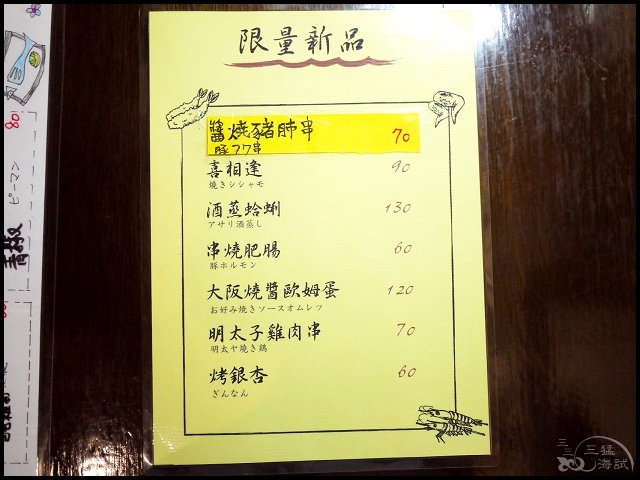 限量新品
醬燒豬肺串 70
豚フワ串
喜相逢 90
焼きシシャモ
酒蒸蛤蜊 130
アサリ酒蒸し
串燒肥腸 60
豚ホルモン
大阪燒醬歐姆蛋 120
お好み焼きソースオムレツ
明太子雞肉串 70
明太ヤ焼き鶏
烤銀杏 60
ぎんなん
80
ピーマン
青椒
三猛
海試